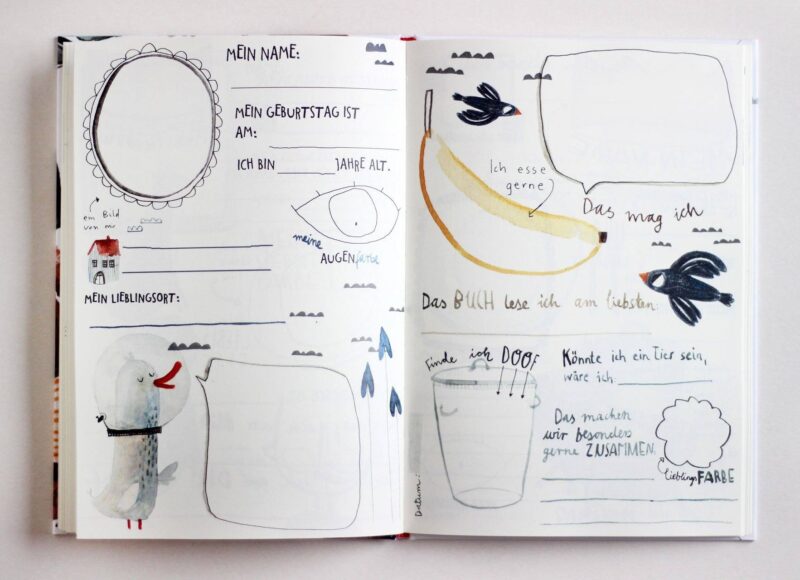 MEIN NAME:
MEIN GEBURTSTAG IST
AM:
ICH BIN ______ JAHRE ALT.
ein Bild
von mir
meine
AUGENfarbe
MEIN LIEBLINGSORT:
Ich esse
gerne
Das mag ich
Das BUCH lese ich am liebsten:
Finde ich DOOF
Könnte ich ein Tier sein,
wäre ich
Das machen
wir besonders
gerne ZUSAMMEN:
LieblingsFARBE
Datum: